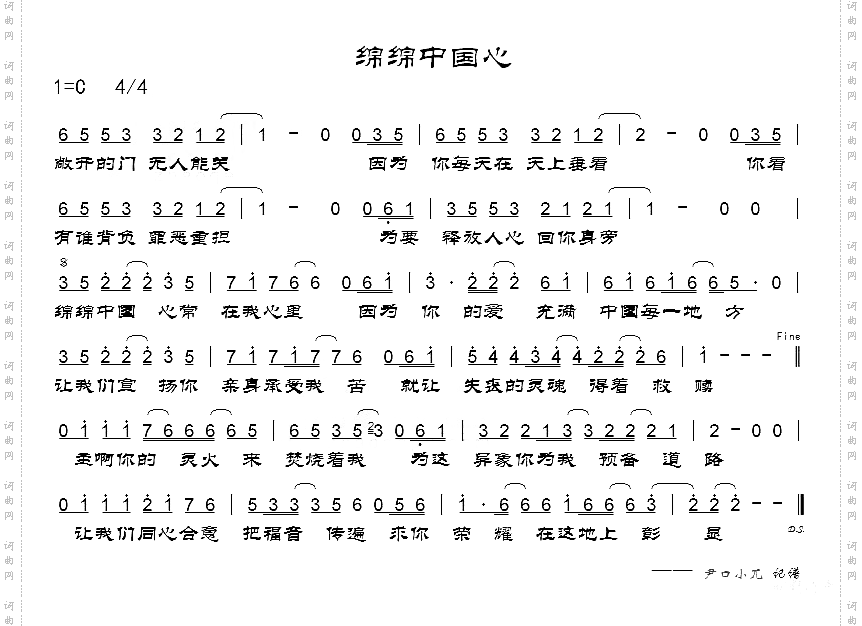 绵绵中国心
1=C 4/4
6 5 5 3 3 2 1 2 | 1 - 0 0 3 5 | 6 5 5 3 3 2 1 2 | 2 - 0 0 3 5 |
敞开的门 无人能关 因为 你每天在 天上垂看 你看
6 5 5 3 3 2 1 2 | 1 - 0 0 6 1 | 3 5 5 3 2 1 2 1 | 1 - 0 0 |
有谁背负 罪恶重担 为要 释放人心 回你真旁
3 5 2 2 2 3 5 | 7 1 7 6 6 0 6 1 | 3 · 2 2 2 6 1 | 6 1 6 1 6 6 5 · 0 |
绵绵中國 心常 在我心里 因为 你 的爱 充满 中國每一地 方
Fine
3 5 2 2 2 3 5 | 7 1 7 1 7 7 6 0 6 1 | 5 4 4 3 4 4 2 2 2 6 | 1 - - - ‖
让我们宣 扬你 亲真承受我 苦 就让 失丧的灵魂 得着 救 赎
0 1 1 1 7 6 6 6 6 5 | 6 5 3 5 2 3 0 6 1 | 3 2 2 1 3 3 2 2 2 1 | 2 - 0 0 |
主啊你的 灵火 来 焚烧着我 为这 异象你为我 预备 道 路
0 1 1 1 2 1 7 6 | 5 3 3 3 5 6 0 5 6 | 1 · 6 6 6 1 6 6 6 3 | 2 2 2 - - ‖
让我们同心合意 把福音 传遍 求你 荣 耀 在这地上 彰 显 D.S.
—— 尹口小兀 记谱
词曲网